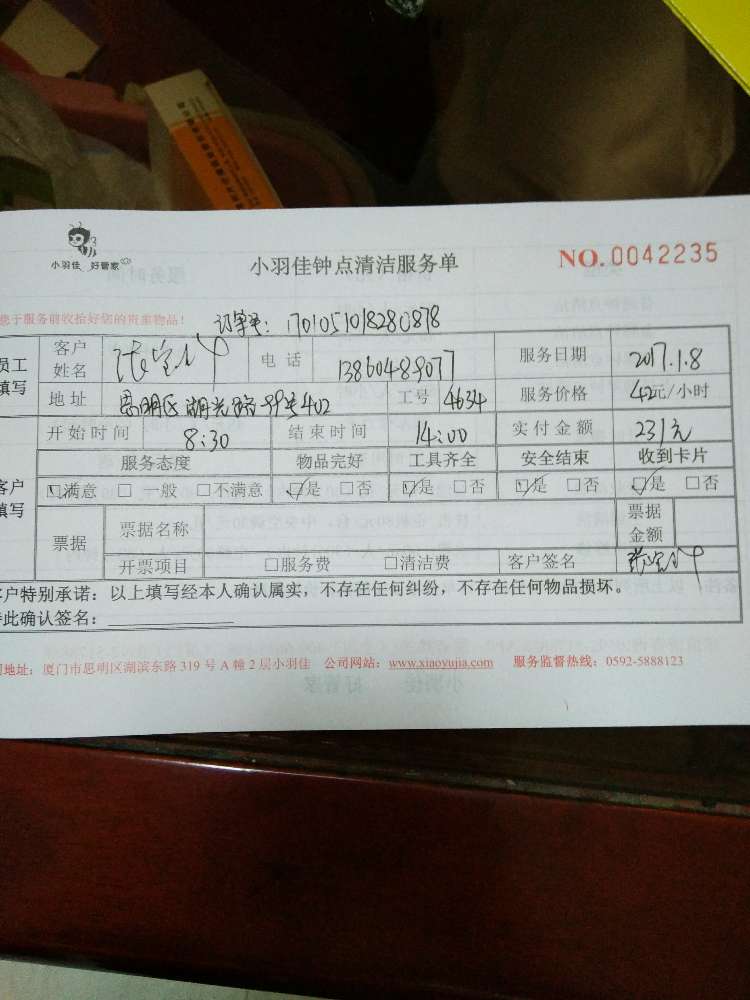 小羽佳 好管家
小羽佳钟点清洁服务单
NO.0042235
您于服务前收拾好您的贵重物品!
订单号: 1701051018280878
员工填写
客户姓名 张 电话 13860489077 服务日期 2017.1.8
地址 思明区湖光路 402 工号 4634 服务价格 42元/小时
客户填写
开始时间 8:30 结束时间 14:00 实付金额 231元
服务态度 物品完好 工具齐全 安全结束 收到卡片
☑满意 □一般 □不满意 ☑是 □否 ☑是 □否 ☑是 □否 ☑是 □否
票据 票据名称 票据金额
开票项目 □服务费 □清洁费 客户签名 张
客户特别承诺:以上填写经本人确认属实,不存在任何纠纷,不存在任何物品损坏。
特此确认签名:
地址:厦门市思明区湖滨东路 319 号 A 幢 2 层小羽佳 公司网站:www.xiaoyujia.com 服务监督热线:0592-5888123